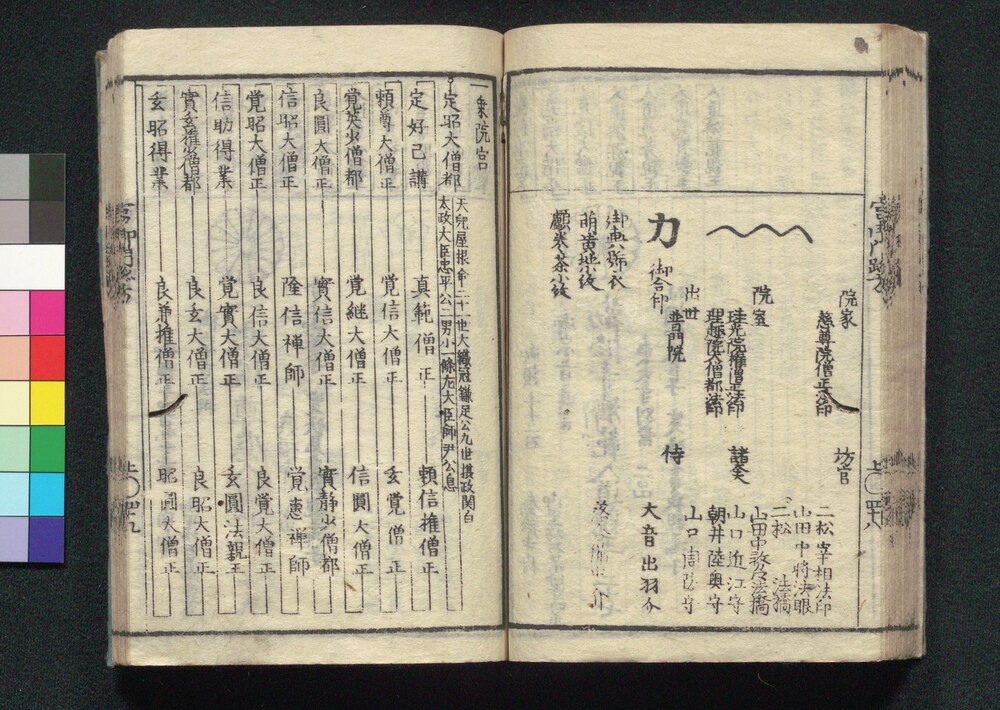 院家
慈尊院僧正法印
院室
珪光院権僧正法印
理趣院大僧都法印
出世
普門院
御合印
力
御輿舁衣
坊官
二松宰相法印
山田中将法眼
二松 法橋
山田中務 法橋
諸大夫
山口近江守
朝井陸奥守
山口周防守
侍
大音出羽介
一乗院宮
定昭大僧都
天兒屋根命二十一世大織冠鎌足公九世摂政関白
太政大臣忠平公二男小一條左大臣師尹公息
定好已講
真範僧正
頼信権僧正
頼尊大僧正
覚信大僧正
玄覚僧正
覚英少僧都
覚継大僧正
信圓大僧正
良圓大僧正
實信大僧正
實静少僧都
信昭大僧正
隆信禅師
覚恵禅師
覚昭大僧正
良信大僧正
良覚大僧正
信助得業
覚實大僧正
玄圓法親王
實玄権少僧都
良玄大僧正
良昭大僧正
玄昭得業
良兼権僧正
昭圓大僧正